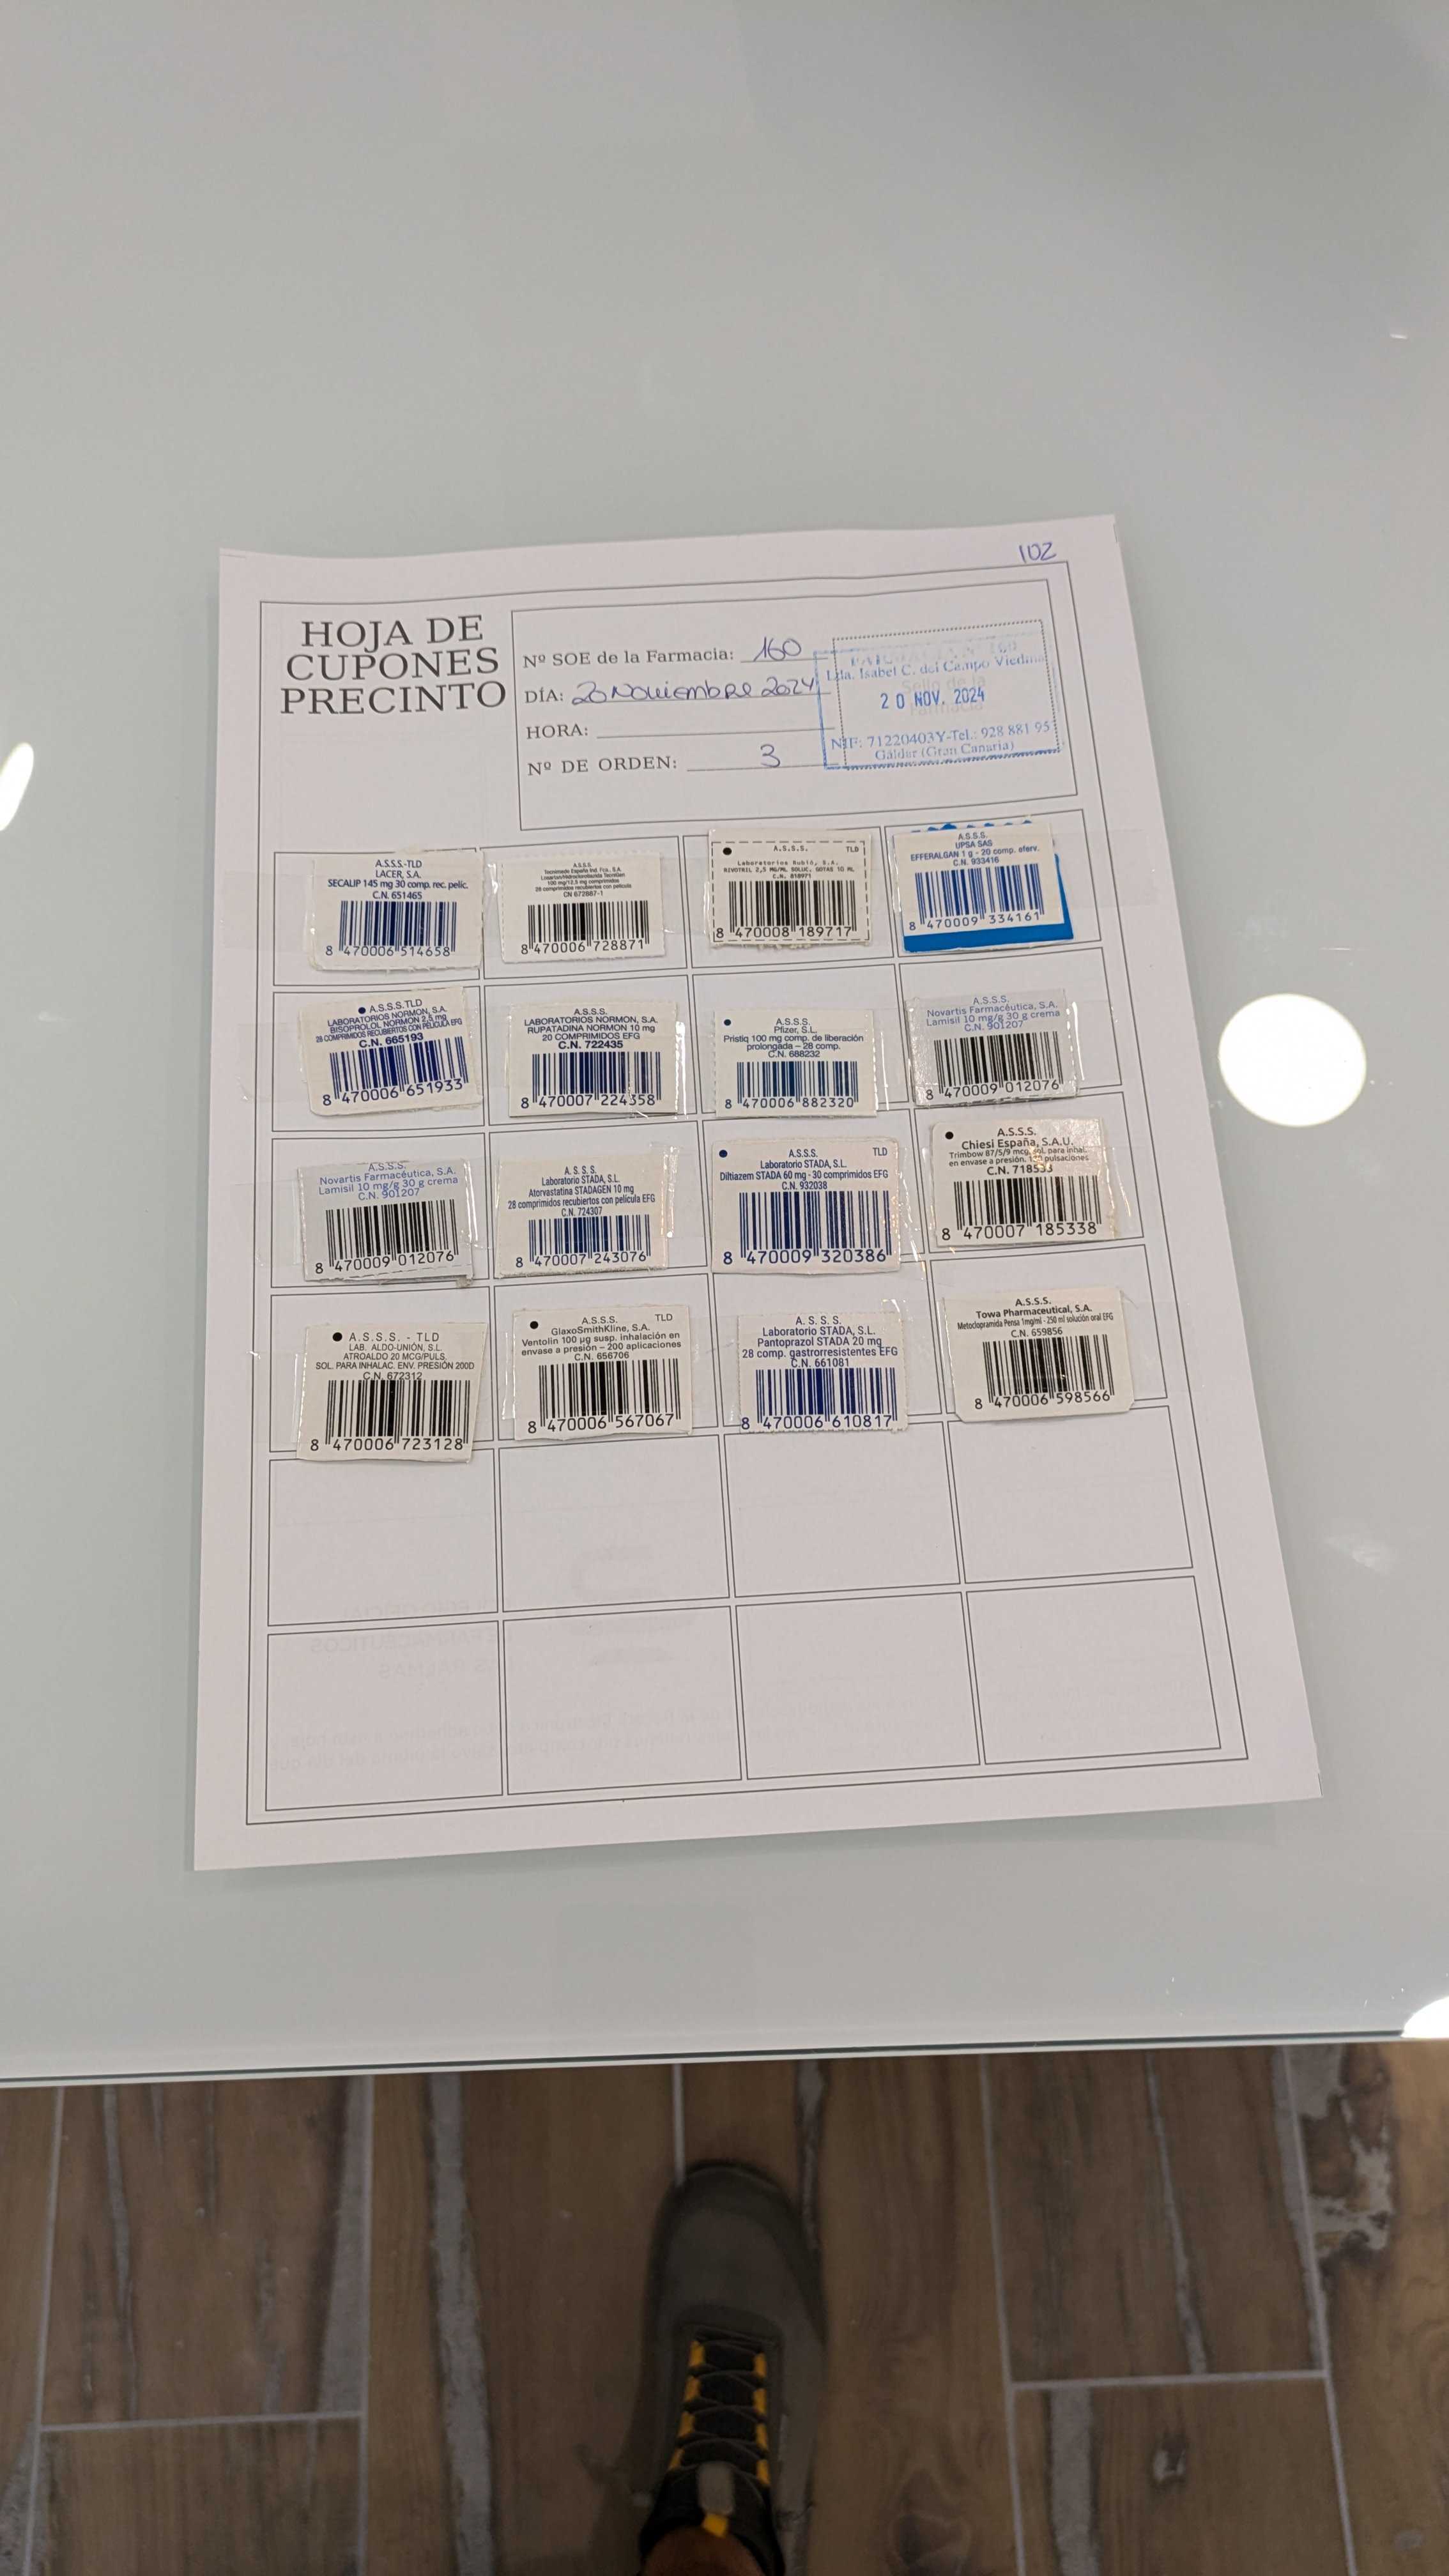 102
HOJA DE
CUPONES
PRECINTO
Nº SOE de la Farmacia: 160
DÍA: 20 Noviembre 2024
HORA:
Nº DE ORDEN: 3
Lda. Isabel C. del Campo Viedma
Sello de la
Farmacia
20 NOV. 2024
NIF: 71220403Y-Tel.: 928 881 95
Gáldar (Gran Canaria)
A.S.S.S.-TLD
LACER, S.A.
SECALIP 145 mg 30 comp. rec. pelíc.
C.N. 651465
8 470006 514658
A.S.S.S.
Tecnimede España Ind. Fca., S.A.
Losartan/Hidroclorotiazida Tecnigen
100 mg/12,5 mg comprimidos
28 comprimidos recubiertos con película
CN 672887-1
8 470006 728871
A.S.S.S. TLD
Laboratorios Rubió, S.A.
RIVOTRIL 2,5 MG/ML SOLUC. GOTAS 10 ML
C.N. 818971
8 470008 189717
A.S.S.S.
UPSA SAS
EFFERALGAN 1 g - 20 comp. eferv.
C.N. 933416
8 470009 334161
A.S.S.S.TLD
LABORATORIOS NORMON, S.A.
BISOPROLOL NORMON 2,5 mg
28 COMPRIMIDOS RECUBIERTOS CON PELICULA EFG
C.N. 665193
8 470006 651933
A.S.S.S.
LABORATORIOS NORMON, S.A.
RUPATADINA NORMON 10 mg
20 COMPRIMIDOS EFG
C.N. 722435
8 470007 224358
A.S.S.S.
Pfizer, S.L.
Pristiq 100 mg comp. de liberación
prolongada – 28 comp.
C.N. 688232
8 470006 882320
A.S.S.S.
Novartis Farmacéutica, S.A.
Lamisil 10 mg/g 30 g crema
C.N. 901207
8 470009 012076
A.S.S.S.
Novartis Farmacéutica, S.A.
Lamisil 10 mg/g 30 g crema
C.N. 901207
8 470009 012076
A. S. S. S.
Laboratorio STADA, S.L.
Atorvastatina STADAGEN 10 mg
28 comprimidos recubiertos con película EFG
C.N. 724307
8 470007 243076
A.S.S.S. TLD
Laboratorio STADA, S.L.
Diltiazem STADA 60 mg - 30 comprimidos EFG
C.N. 932038
8 470009 320386
A.S.S.S.
Chiesi España, S.A.U.
Trimbow 87/5/9 mcg. sol. para inhal.
en envase a presión. pulsaciones
C.N. 718533
8 470007 185338
A.S.S.S. - TLD
LAB. ALDO-UNIÓN, S.L.
ATROALDO 20 MCG/PULS.
SOL. PARA INHALAC. ENV. PRESIÓN 200D
C.N. 672312
8 470006 723128
A.S.S.S. TLD
GlaxoSmithKline, S.A.
Ventolin 100 µg susp. inhalación en
envase a presión – 200 aplicaciones
C.N. 656706
8 470006 567067
A. S. S. S.
Laboratorio STADA, S.L.
Pantoprazol STADA 20 mg
28 comp. gastrorresistentes EFG
C.N. 661081
8 470006 610817
A.S.S.S.
Towa Pharmaceutical, S.A.
Metoclopramida Pensa 1mg/ml - 250 ml solución oral EFG
C.N. 659856
8 470006 598566